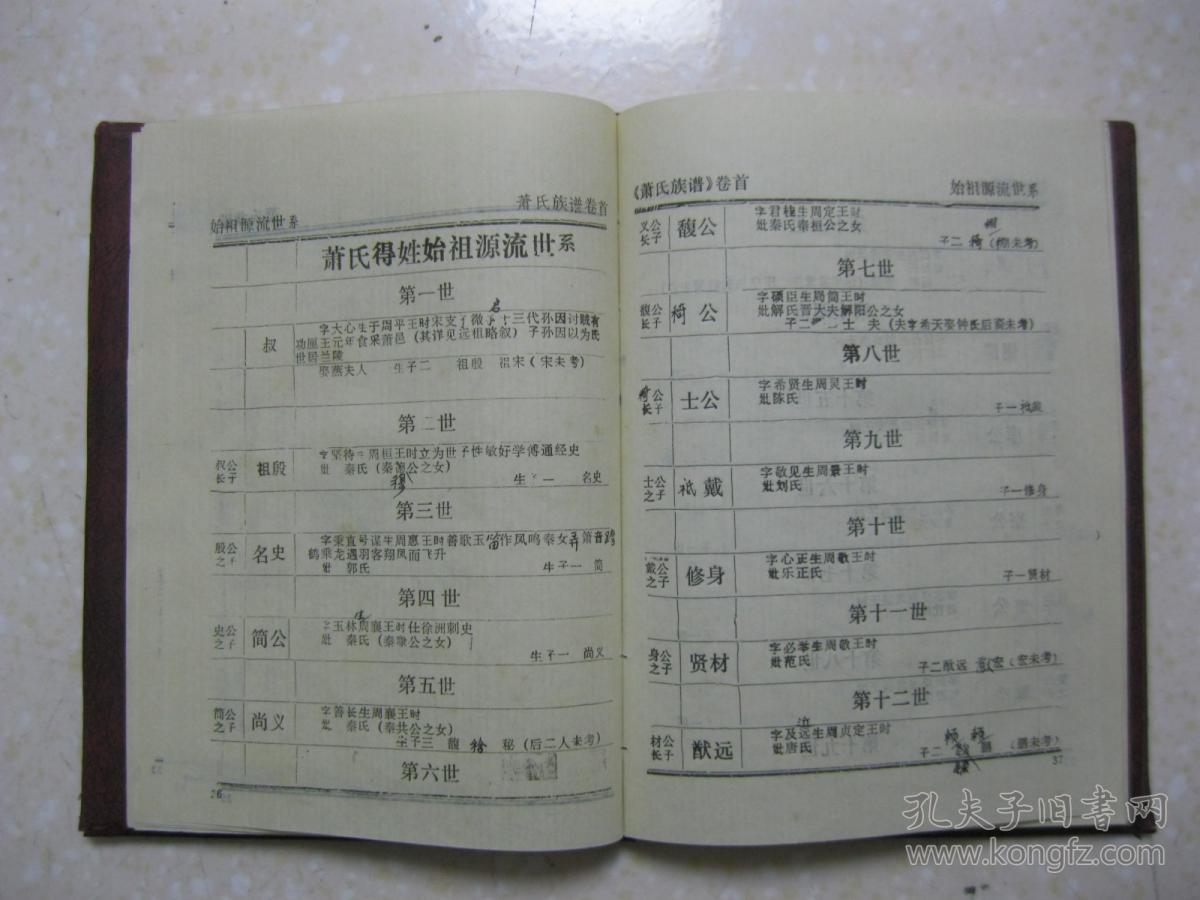 萧氏族谱卷首
始祖源流世系
萧氏得姓始祖源流世系
第一世
叔
字大心生于周平王时宋支子微 十三代孙因讨贼有
功厘王元年食采萧邑（其详见远祖略叙）子孙因以为氏
世居兰陵
娶燕夫人 生子二 祖殷 祖宋（宋未考）
第二世
叔公
长子
祖殷
字坚待 周桓王时立为世子性敏好学傅通经史
妣 秦氏（秦 公之女）
穆
生子一 名史
第三世
殷公
之子
名史
字秉直号谋生周惠王时善歌玉笛作凤鸣奉女弄箫音跨
鹤乘龙遇羽客翔凤而飞升
妣 郭氏
生子一 简
第四世
史公
之子
简公
生
字玉林周襄王时仕徐洲刺史
妣 秦氏（秦 公之女）
生子一 尚义
第五世
简公
之子
尚义
字善长生周襄王时
妣 秦氏（秦共公之女）
生子三 馥 秘（后二人未考）
第六世
26
《萧氏族谱》卷首
始祖源流世系
义公
长子
馥公
字君 生周定王时
妣秦氏秦桓公之女
子二 椅（ 未考）
第七世
馥公
长子
椅公
字硕臣生周简王时
妣解氏晋大夫解阳公之女
子二 士 夫（夫字希天娶钟氏后裔未考）
第八世
椅公
长子
士公
字希贤生周灵王时
妣陈氏
子一祗戴
第九世
士公
之子
祗戴
字敬见生周景王时
妣刘氏
子一修身
第十世
戴公
之子
修身
字心正生周敬王时
妣乐正氏
子一贤材
第十一世
身公
之子
贤材
字必举生周敬王时
妣范氏
子二猷远 宏（宏未考）
第十二世
材公
长子
猷远
字及远生周贞定王时
妣唐氏
子二
37
孔夫子旧书网
www.kongfz.com